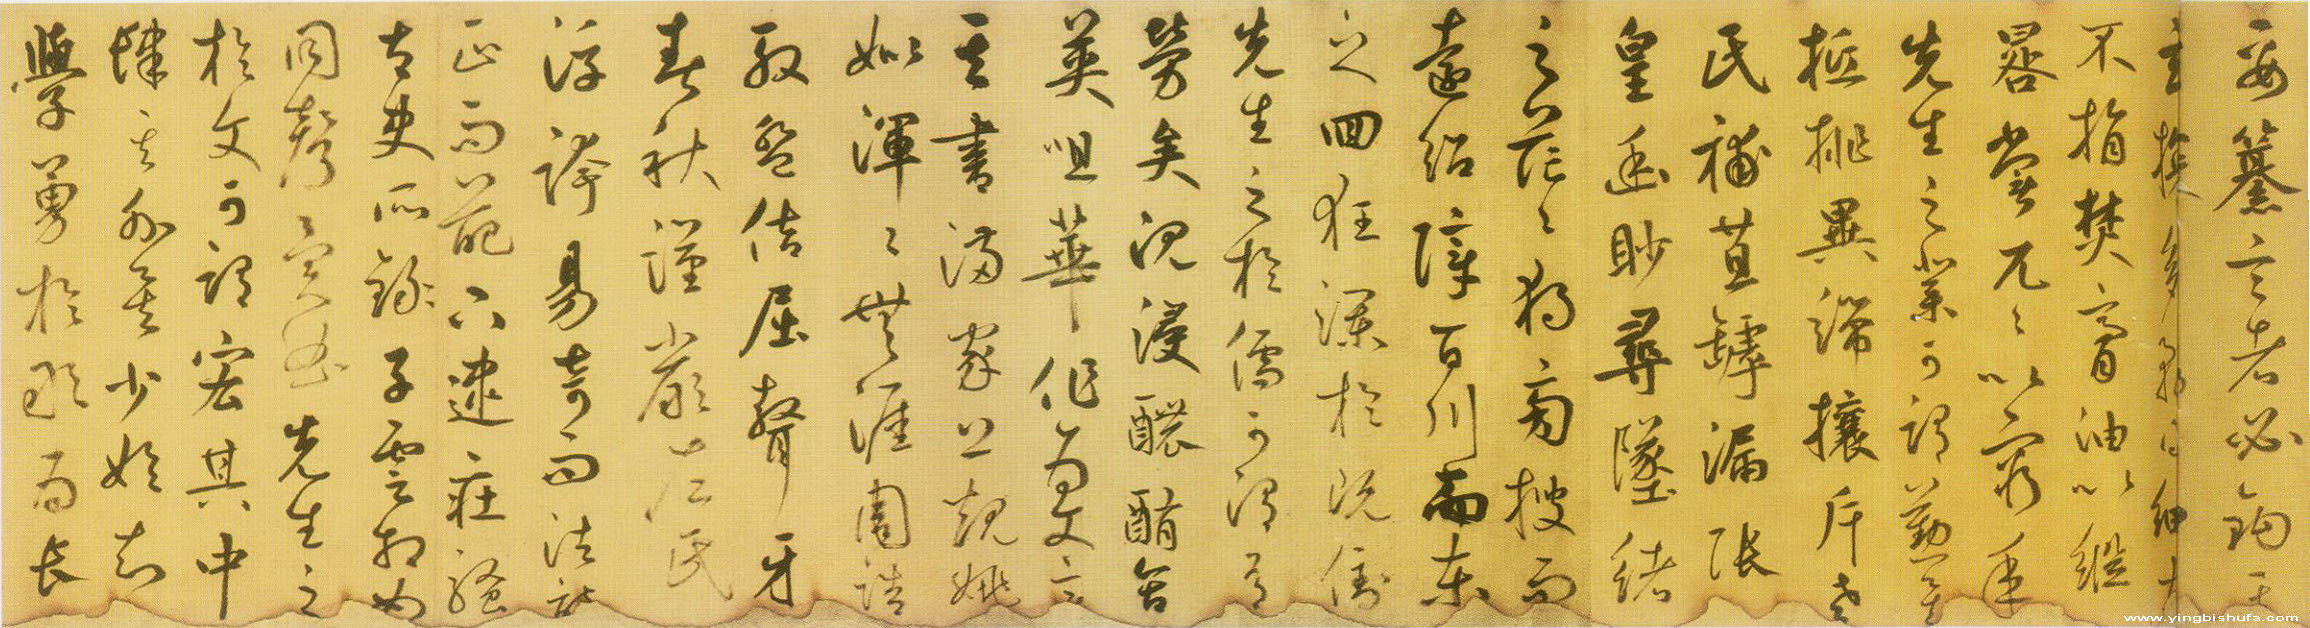 要纂言者必鉤其
玄多務得細大
不捐焚膏油以繼
晷嘗兀々以窮年
先生之業可謂勤矣
抵排異端攘斥老
氏補苴罅漏張
皇幽眇尋墜緒
之茫々獨旁搜而
遠紹障百川而東
之回狂瀾於既倒
先生之於儒可謂有
勞矣沉浸醲含
英咀華作為文章
其書滿家上規姚
姒渾々無涯周誥
殷盤佶屈聱牙
春秋謹嚴左氏
浮誇易奇而法詩
正而葩下逮莊騷
太史所錄子雲相如
同聲異曲先生之
於文可謂宏其中
肆其外矣少始知
學勇於敢為長
www.yingbishufa.com